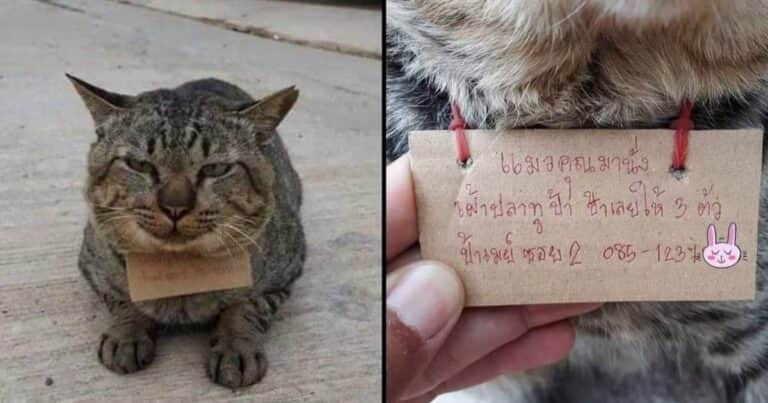 แมวคุณมานั่ง
เฝ้าปลาทู ป้า ข้าเลยให้ 3 ตัว
ป้าเมย์ ซอย 2 085-123